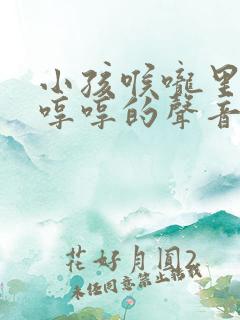 小孩喉嚨里
哼哼的聲音
花好月圓2
未經同意禁止轉載